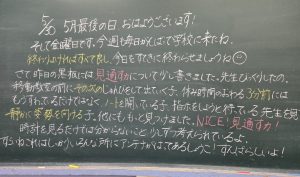 5/30 5月最後の日 おはようございます!
そして金曜日です。今週も毎日がんばって学校に来たね。
終わりよければすべて良し 今日もすてきに終わらせましょうね
さて昨日の黒板には見通すかについて少し書きました。先生びっくりしたの。
移動教室の前にその次のじゅんびをして出ていく子、休み時間のおわる3分前には
もうすわっているだけではなく、ノートを開いている子、指示をしようと待っている先生を見
静かに姿勢を向ける子、他にももっと見つけました。NICE!見通す力!
時計を見るだけでは分からないこと少しずつ考えられているよ。
すごいねこれはしっかりいろんな所にアンテナがはってあるしょうこ!すんばらしいよ!